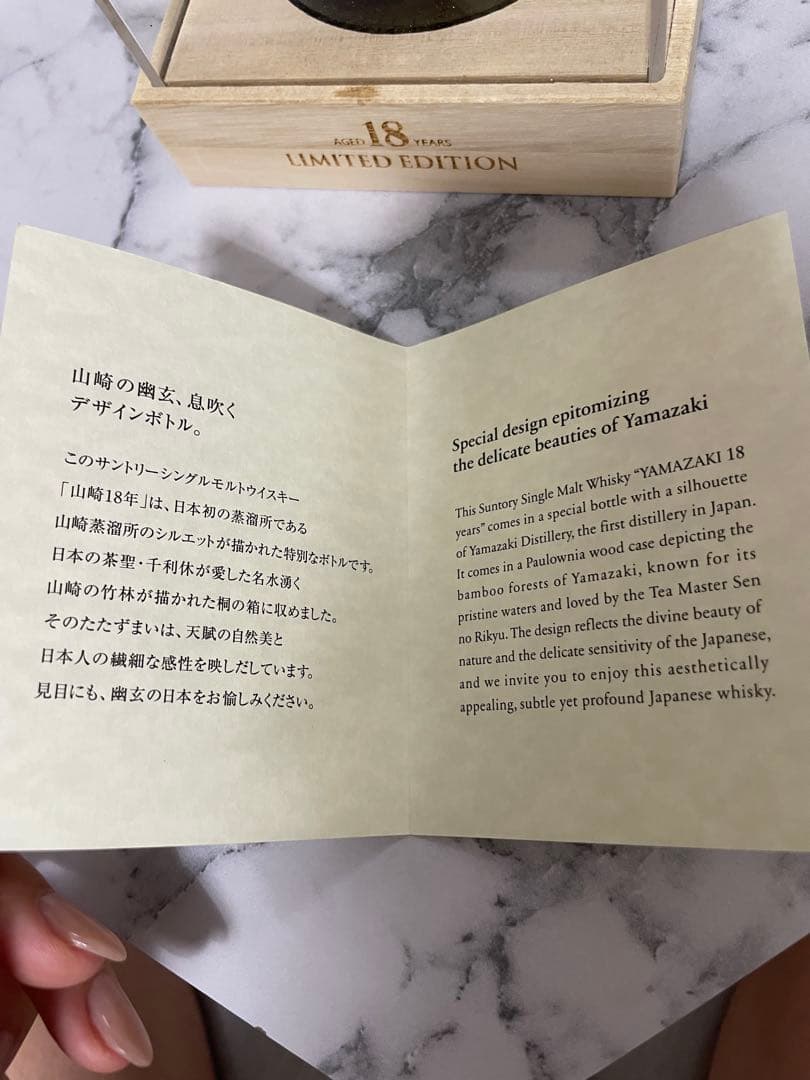 AGED 18 YEARS
LIMITED EDITION
山崎の幽玄、息吹く
デザインボトル。
このサントリーシングルモルトウイスキー
「山崎18年」は、日本初の蒸溜所である
山崎蒸溜所のシルエットが描かれた特別なボトルです。
日本の茶聖・千利休が愛した名水湧く
山崎の竹林が描かれた桐の箱に収めました。
そのたたずまいは、天賦の自然美と
日本人の繊細な感性を映しだしています。
見目にも、幽玄の日本をお愉しみください。
Special design epitomizing
the delicate beauties of Yamazaki
This Suntory Single Malt Whisky “YAMAZAKI 18
years” comes in a special bottle with a silhouette
of Yamazaki Distillery, the first distillery in Japan.
It comes in a Paulownia wood case depicting the
bamboo forests of Yamazaki, known for its
pristine waters and loved by the Tea Master Sen
no Rikyu. The design reflects the divine beauty of
nature and the delicate sensitivity of the Japanese,
and we invite you to enjoy this aesthetically
appealing, subtle yet profound Japanese whisky.